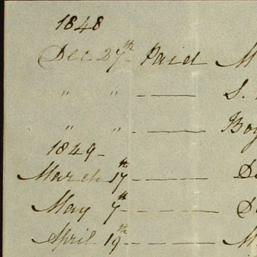 1848
Dec 27th Paid M
" " — S.
" " — Boy
1849 -
March 17th - — D
May 7th - - - — D
April 19th - - — — M